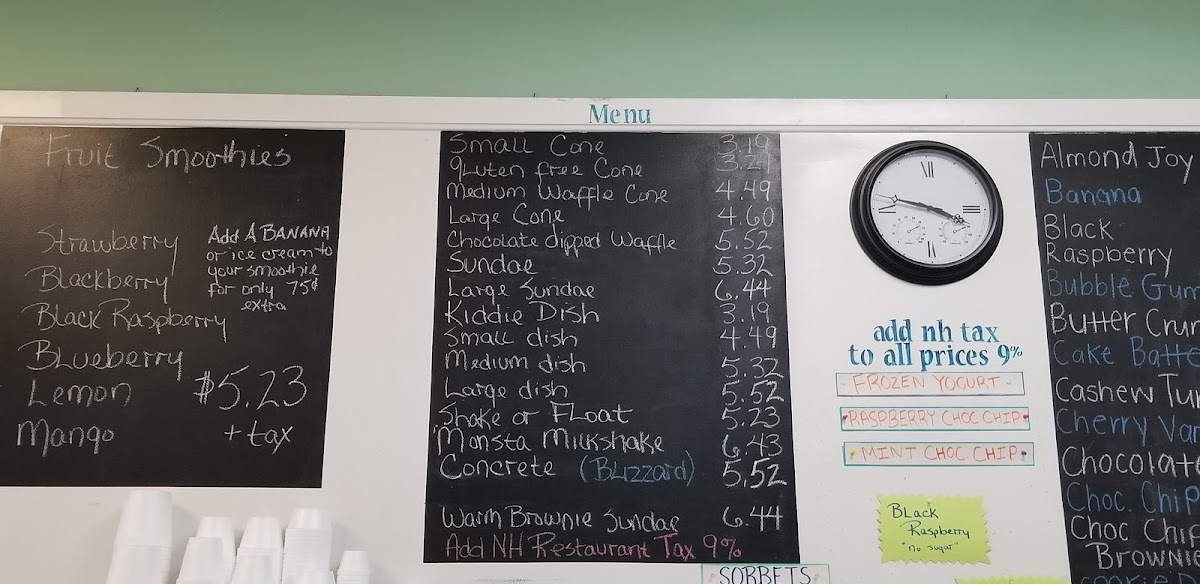 Menu
Fruit Smoothies
Strawberry
Blackberry
Black Raspberry
Blueberry
Lemon
Mango
Add A BANANA
or ice cream to
your smoothie
for only 75¢
extra
$5.23
+ tax
Small Cone 3.19
gluten free Cone 3.29
Medium Waffle Cone 4.49
Large Cone 4.60
Chocolate dipped Waffle 5.52
Sundae 5.32
Large Sundae 6.44
Kiddie Dish 3.19
Small dish 4.49
Medium dish 5.32
Large dish 5.52
Shake or Float 5.23
Monsta Milkshake 6.43
Concrete (Blizzard) 5.52
Warm Brownie Sundae 6.44
Add NH Restaurant Tax 9%
SORBETS
XII
III
VI
IX
add nh tax
to all prices 9%
FROZEN YOGURT
RASPBERRY CHOC.CHIP
MINT CHOC CHIP
Black
Raspberry
"no sugar"
Almond Joy
Banana
Black
Raspberry
Bubble Gum
Butter Crun
Cake Batte
Cashew Tur
Cherry Van
Chocolate
Choc. Chip
Choc Chip
Brownie